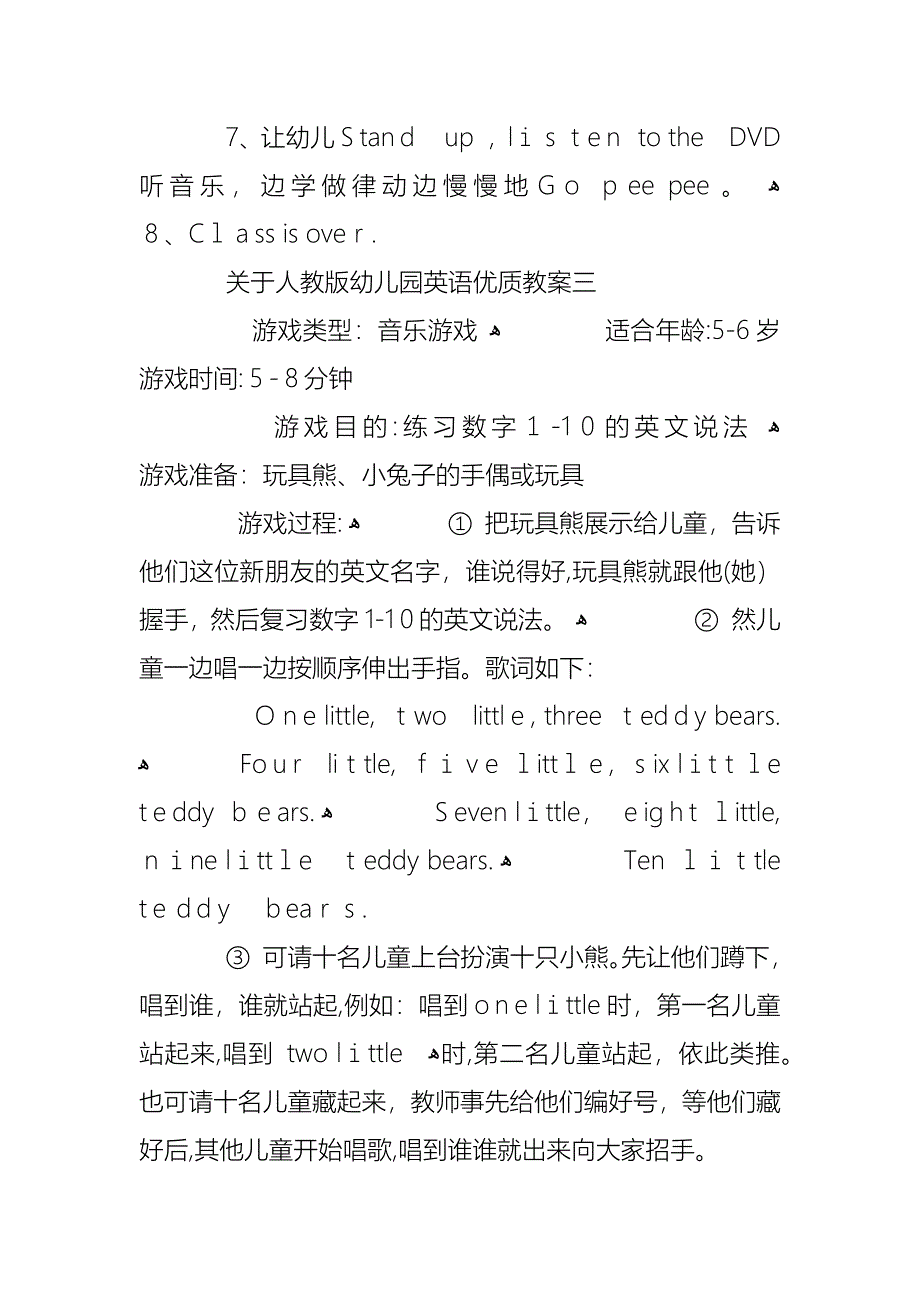 7、让幼儿Stand up,listen to the DVD
听音乐，边学做律动边慢慢地Go pee pee。 ﻫ
8、Class is over.
关于人教版幼儿园英语优质教案三
游戏类型：音乐游戏 ﻫ 适合年龄:5-6岁
游戏时间: 5-8分钟
游戏目的:练习数字1-10的英文说法 ﻫ
游戏准备：玩具熊、小兔子的手偶或玩具
游戏过程: ﻫ ① 把玩具熊展示给儿童，告诉
他们这位新朋友的英文名字，谁说得好,玩具熊就跟他(她）
握手，然后复习数字1-10的英文说法。 ﻫ ② 然儿
童一边唱一边按顺序伸出手指。歌词如下：
One little, two little, three teddy bears.
ﻫ Four little, five little, six little
teddy bears. ﻫ Seven little, eight little,
nine little teddy bears. ﻫ Ten little
teddy bears.
③ 可请十名儿童上台扮演十只小熊。先让他们蹲下，
唱到谁，谁就站起,例如：唱到one little时，第一名儿童
站起来,唱到 two little ﻫ时,第二名儿童站起，依此类推。
也可请十名儿童藏起来，教师事先给他们编好号，等他们藏
好后,其他儿童开始唱歌,唱到谁谁就出来向大家招手。